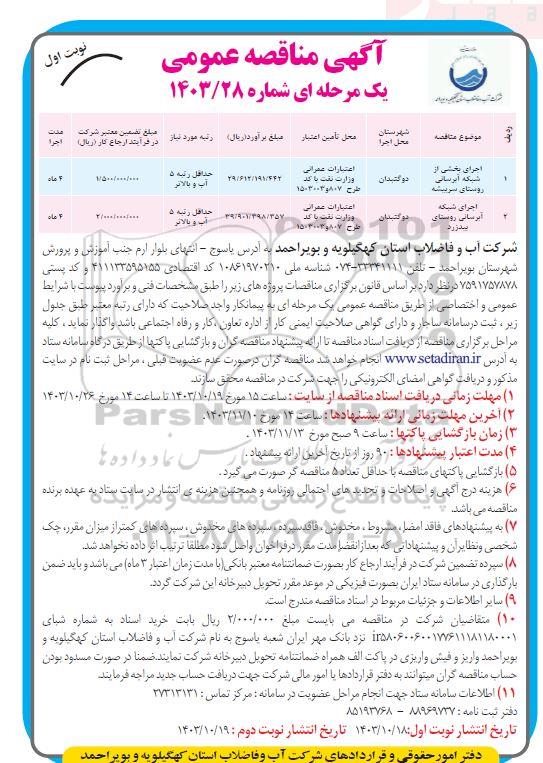 نوبت اول
آگهی مناقصه عمومی
یک مرحله ای شماره ۱۴۰۳/۲۸
شرکت آب و فاضلاب استان کهگیلویه و بویراحمد
ردیف | موضوع مناقصه | شهرستان محل اجرا | محل تأمین اعتبار | مبلغ برآورد(ریال) | رتبه مورد نیاز | مبلغ تضمین معتبر شرکت در فرآیند ارجاع کار (ریال) | مدت اجرا
۱ | اجرای بخشی از شبکه آبرسانی روستای سربیشه | دوگنبدان | اعتبارات عمرانی وزارت نفت با کد طرح ۸۰۷و۱۵۰۳۰۰۳ | ۲۹/۶۱۲/۱۹۱/۴۴۲ | حداقل رتبه ۵ آب و بالاتر | ۱/۵۰۰/۰۰۰/۰۰۰ | ۴ ماه
۲ | اجرای شبکه آبرسانی روستای بیدزرد | دوگنبدان | اعتبارات عمرانی وزارت نفت با کد طرح ۸۰۷و۱۵۰۳۰۰۳ | ۳۹/۹۰۱/۳۹۸/۳۵۷ | حداقل رتبه ۵ آب و بالاتر | ۲/۰۰۰/۰۰۰/۰۰۰ | ۴ ماه
شرکت آب و فاضلاب استان کهگیلویه و بویراحمد به آدرس یاسوج - انتهای بلوار ارم جنب آموزش و پرورش
شهرستان بویراحمد - تلفن ۳۳۳۴۱۱۱۱-۰۷۴ شناسه ملی ۱۰۸۶۱۹۷۰۲۱۰ کد اقتصادی ۴۱۱۱۳۳۵۹۵۱۵۵ و کد پستی
۷۵۹۱۷۵۷۸۷۸ درنظر دارد بر اساس قانون برگزاری مناقصات پروژه های زیر را طبق مشخصات فنی و برآورد پیوست با شرایط
عمومی و اختصاصی از طریق مناقصه عمومی یک مرحله ای به پیمانکار واجد صلاحیت که دارای رتبه معتبر طبق جدول
زیر ، ثبت درسامانه ساجار و دارای گواهی صلاحیت ایمنی کار از اداره تعاون ،کار و رفاه اجتماعی باشد واگذار نماید ، کلیه
مراحل برگزاری مناقصه از دریافت اسناد مناقصه تا ارائه پیشنهاد مناقصه گران و بازگشایی پاکتها از طریق درگاه سامانه ستاد
به آدرس www.setadiran.ir انجام خواهد شد مناقصه گران درصورت عدم عضویت قبلی ، مراحل ثبت نام در سایت
مذکور و دریافت گواهی امضای الکترونیکی را جهت شرکت در مناقصه محقق سازند.
۱) مهلت زمانی دریافت اسناد مناقصه از سایت : ساعت ۱۵ مورخ ۱۴۰۳/۱۰/۱۹ تا ساعت ۱۴ مورخ ۱۴۰۳/۱۰/۲۶
۲) آخرین مهلت زمانی ارائه پیشنهادها : ساعت ۱۴ مورخ ۱۴۰۳/۱۱/۱۰ .
۳) زمان بازگشایی پاکتها : ساعت ۹ صبح مورخ ۱۴۰۳/۱۱/۱۳ .
۴) مدت اعتبار پیشنهادها : ۹۰ روز از تاریخ آخرین ارائه پیشنهاد .
۵) بازگشایی پاکتهای مناقصه با حداقل تعداد ۵ مناقصه گر صورت می گیرد .
۶) هزینه درج آگهی و اصلاحات و تجدید های احتمالی روزنامه و همچنین هزینه ی انتشار در سایت ستاد به عهده برنده
مناقصه می باشد.
۷) به پیشنهادهای فاقد امضا، مشروط ، مخدوش ، فاقدسپرده ، سپرده های مخدوش ، سپرده های کمتر از میزان مقرر، چک
شخصی ونظایر آن و پیشنهاداتی که بعداز انقضا مدت مقرر در فراخوان واصل شود مطلقا ترتیب اثر داده نخواهد شد.
۸) سپرده تضمین شرکت در فرآیند ارجاع کار بصورت ضمانتنامه معتبر بانکی(با مدت زمان اعتبار ۳ ماه) می باشد و باید ضمن
بارگذاری در سامانه ستاد ایران بصورت فیزیکی در موعد مقرر تحویل دبیرخانه این شرکت گردد.
۹) سایر اطلاعات و جزئیات مربوط در اسناد مناقصه مندرج است.
۱۰) متقاضیان شرکت در مناقصه می بایست مبلغ ۲/۰۰۰/۰۰۰ ریال بابت خرید اسناد به شماره شبای
ir۵۸۰۶۰۰۶۰۰۱۷۷۶۱۱۸۱۱۸۰۰۰۱ نزد بانک مهر ایران شعبه یاسوج به نام شرکت آب و فاضلاب استان کهگیلویه و
بویراحمد واریز و فیش واریزی در پاکت الف همراه ضمانتنامه تحویل دبیرخانه شرکت نمایند.ضمنا در صورت مسدود بودن
حساب مناقصه گران میتوانند به دفتر قراردادها یا امور مالی شرکت جهت دریافت حساب جدید مراجعه فرمایند.
۱۱) اطلاعات سامانه ستاد جهت انجام مراحل عضویت در سامانه : مرکز تماس : ۲۷۳۱۳۱۳۱
دفتر ثبت نامه : ۸۸۹۶۹۷۳۷ - ۸۵۱۹۳۷۶۸
تاریخ انتشار نوبت اول:۱۴۰۳/۱۰/۱۸ تاریخ انتشار نوبت دوم : ۱۴۰۳/۱۰/۱۹
دفتر امور حقوقی و قراردادهای شرکت آب وفاضلاب استان کهگیلویه و بویراحمد